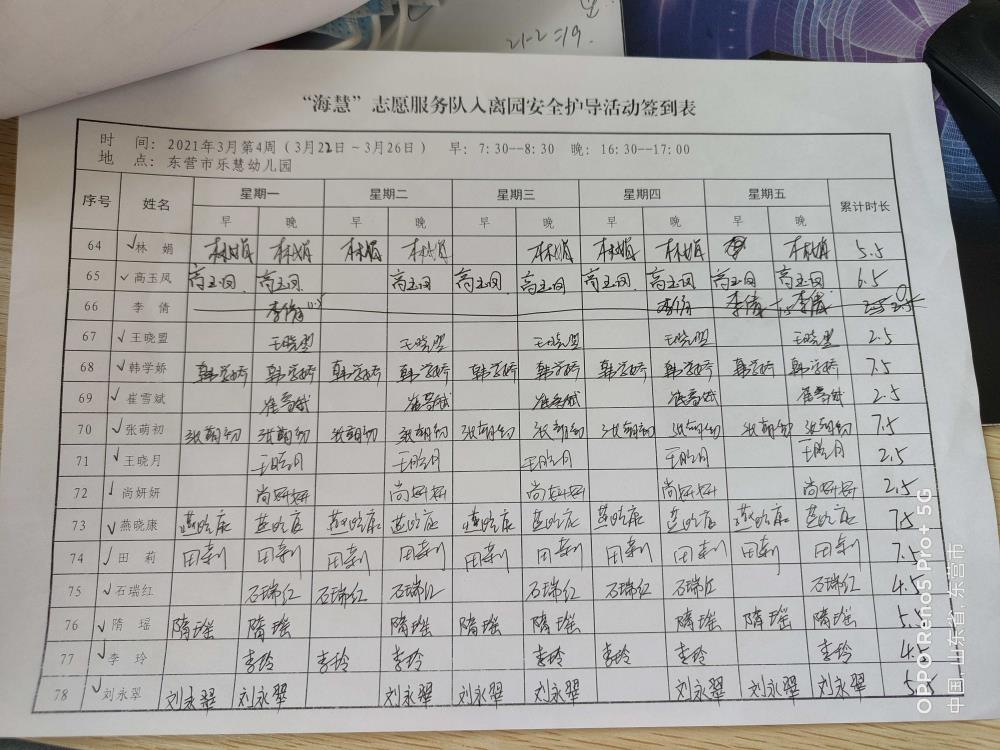 21-2=19.
“海慧”志愿服务队入离园安全护导活动签到表
时 间: 2021年3月第4周(3月22日~3月26日) 早: 7:30--8:30 晚: 16:30--17:00
地 点: 东营市乐慧幼儿园
序号 姓名 星期一 星期二 星期三 星期四 星期五 累计时长
早 晚 早 晚 早 晚 早 晚 早 晚
64 ✓林 娟 林娟 林娟 林娟 林娟 林娟 林娟 林娟 林娟 5.5
65 ✓高玉凤 高玉凤 高玉凤 高玉凤 高玉凤 高玉凤 高玉凤 高玉凤 高玉凤 高玉凤 6.5
66 李 倩 李倩 李倩 李倩 李倩
67 ✓王晓盟 王晓盟 王晓盟 王晓盟 王晓盟 王晓盟 2.5
68 ✓韩学娇 韩学娇 韩学娇 韩学娇 韩学娇 韩学娇 韩学娇 韩学娇 韩学娇 韩学娇 韩学娇 7.5
69 ✓崔雪斌 崔雪斌 崔雪斌 崔雪斌 崔雪斌 崔雪斌 2.5
70 ✓张萌初 张萌初 张萌初 张萌初 张萌初 张萌初 张萌初 张萌初 张萌初 张萌初 张萌初 7.5
71 ✓王晓月 王晓月 王晓月 王晓月 王晓月 王晓月 2.5
72 ✓尚妍妍 尚妍妍 尚妍妍 尚妍妍 尚妍妍 尚妍妍 2.5
73 ✓燕晓康 燕晓康 燕晓康 燕晓康 燕晓康 燕晓康 燕晓康 燕晓康 燕晓康 燕晓康 燕晓康 7.5
74 ✓田 莉 田莉 田莉 田莉 田莉 田莉 田莉 田莉 田莉 田莉 田莉 7.5
75 ✓石瑞红 石瑞红 石瑞红 石瑞红 石瑞红 石瑞红 石瑞红 石瑞红 4.5
76 ✓隋 瑶 隋瑶 隋瑶 隋瑶 隋瑶 隋瑶 隋瑶 隋瑶 隋瑶 5.5
77 ✓李 玲 李玲 李玲 李玲 李玲 李玲 李玲 李玲 4.5
78 ✓刘永翠 刘永翠 刘永翠 刘永翠 刘永翠 刘永翠 刘永翠 刘永翠 刘永翠 5.5
OPPO Reno5 Pro+ 5G
中国,山东省,东营市